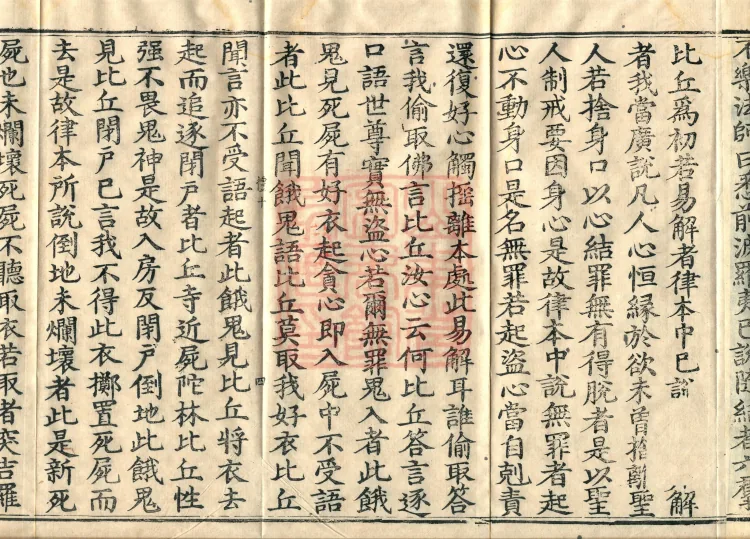 樂法師曰悉前波羅夷已說隨結者六羣
比丘爲初若易解者律本中已說 解
者我當廣說凡人心恒緣於欲未曾捨離聖
人若捨身口以心結罪無有得脫者是以聖
人制戒要因身心是故律本中說無罪者起
心不動身口是名無罪若起盜心當自剋責
還復好心觸搖離本處此易解耳誰偷取答
言我偷取佛言比丘汝心云何比丘答言逐
口語世尊實無盜心若爾無罪鬼入者此餓
鬼見死屍有好衣起貪心即入屍中不受語
者此比丘聞餓鬼語比丘莫取我好衣比丘
十 四
聞言亦不受語起者此餓鬼見比丘將衣去
起而追逐閉戶者比丘寺近屍陀林比丘性
强不畏鬼神是故入房反閉戶倒地此餓鬼
見比丘閉戶已言我不得此衣擲置死屍而
去是故律本所說倒地未爛壞者此是新死
屍也未爛壞死屍不聽取衣若取者突吉羅